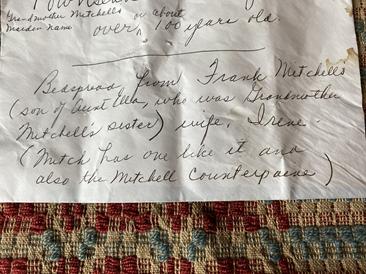 Grandmother Mitchell's or about
Maiden name over, 100 years old.
Bedspread from Frank Mitchell's
(son of Aunt Ella, who was Grandmother
Mitchell's sister) wife, Irene.
(Mitch has one like it and
also the Mitchell Counterpaine)